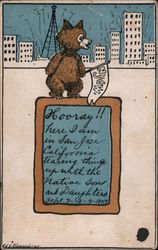 Hooray!!
here I am
in San Jose
California
tearing things
up with the
Native Sons
and Daughters
Sept 7-8-9-1907